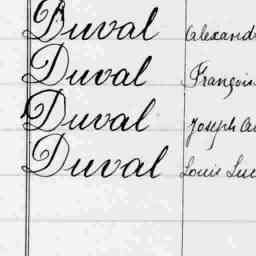 Duval Alexand
Duval François
Duval Joseph
Duval Louis